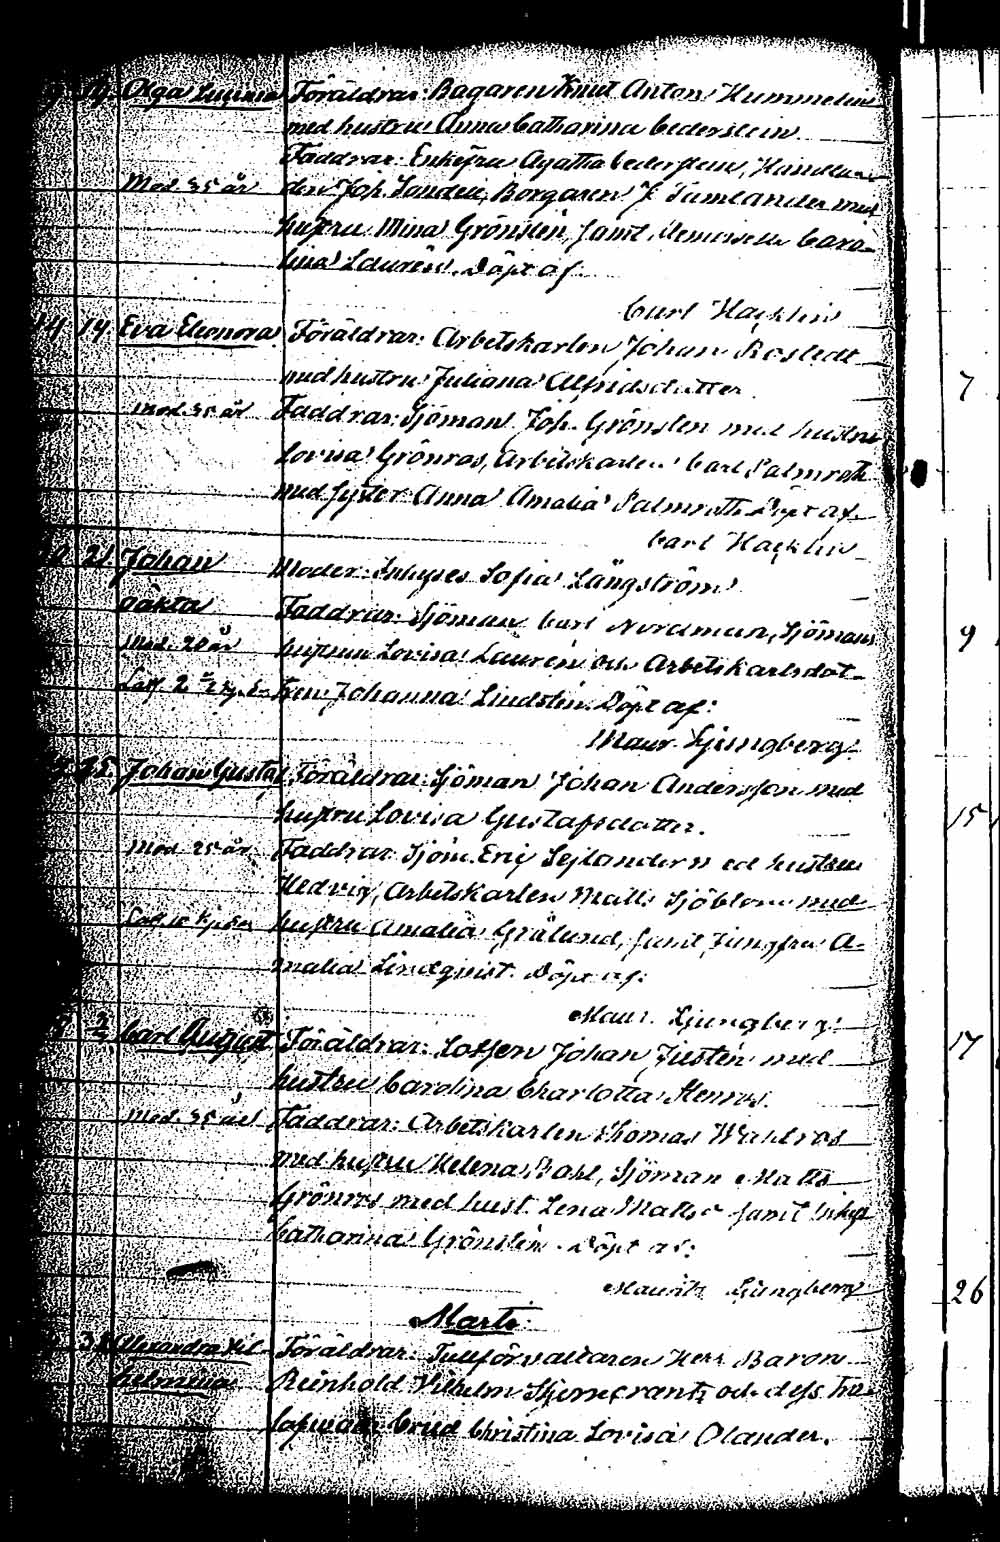 Olga Lovisa Föräldrar: Bagaren Knut Anton Hummelin
med hustru Anna Catharina Cederstein.
Faddrar: Enkefru Agatha Cederstein, Handlan-
Mod. 35 år den Joh. Sandell, Borgaren J. Tamlander med
hustru Mina Grönstén, samt Demoiselle Caro-
lina Laurén. Döpt af:
Carl Hacklin
14 14 Eva Eleonora Föräldrar: Arbetskarlen Johan Rostedt
med hustru Juliana Alfridsdotter
7
Mod. 35 år Faddrar: Sjöman Joh. Grönsten med hustru
Lovisa Grönros, Arbetskarlen Carl Palmroth
med syster Anna Amalia Palmroth Döpt af.
Carl Hacklin
21 Johan Moder: Inhyses Sofia Långström
oäkta Faddrar: Sjöman Carl Nordman, Sjömans
9
Mod. 20 år hustrun Lovisa Laurén och Arbetskarlsdot-
tren Johanna Lindstén. Döpt af:
Maur. Ljungberg.
25 Johan Gustaf Föräldrar: Sjöman Johan Andersson med
hustru Lovisa Gustafsdotter.
15
Mod. 25 år Faddrar: Sjöm. Eric Sejlander med hustru
Hedvig, Arbetskarlen Matts Sjöblom med
hustru Amalia Grälund, samt jungfru A-
malia Lindqvist. Döpt af:
Maur. Ljungberg.
Carl August Föräldrar: Lotsen Johan Justén med
17
hustru Carolina Charlotta Henros.
Mod. 35 år Faddrar: Arbetskarlen Thomas Wahlros
med hustru Helena Bohl, Sjöman Matts
Grönros med hust. Lena Matts samt Inhys
Catharina Grönstén. Döpt af:
Maurits Ljungberg
26
Marti
Alexandra Vil- Föräldrar: Tullförvaltaren Herr Baron
helmina Reinhold Vilhelm Stjerncrantz och dess
Christina Lovisa Olander.